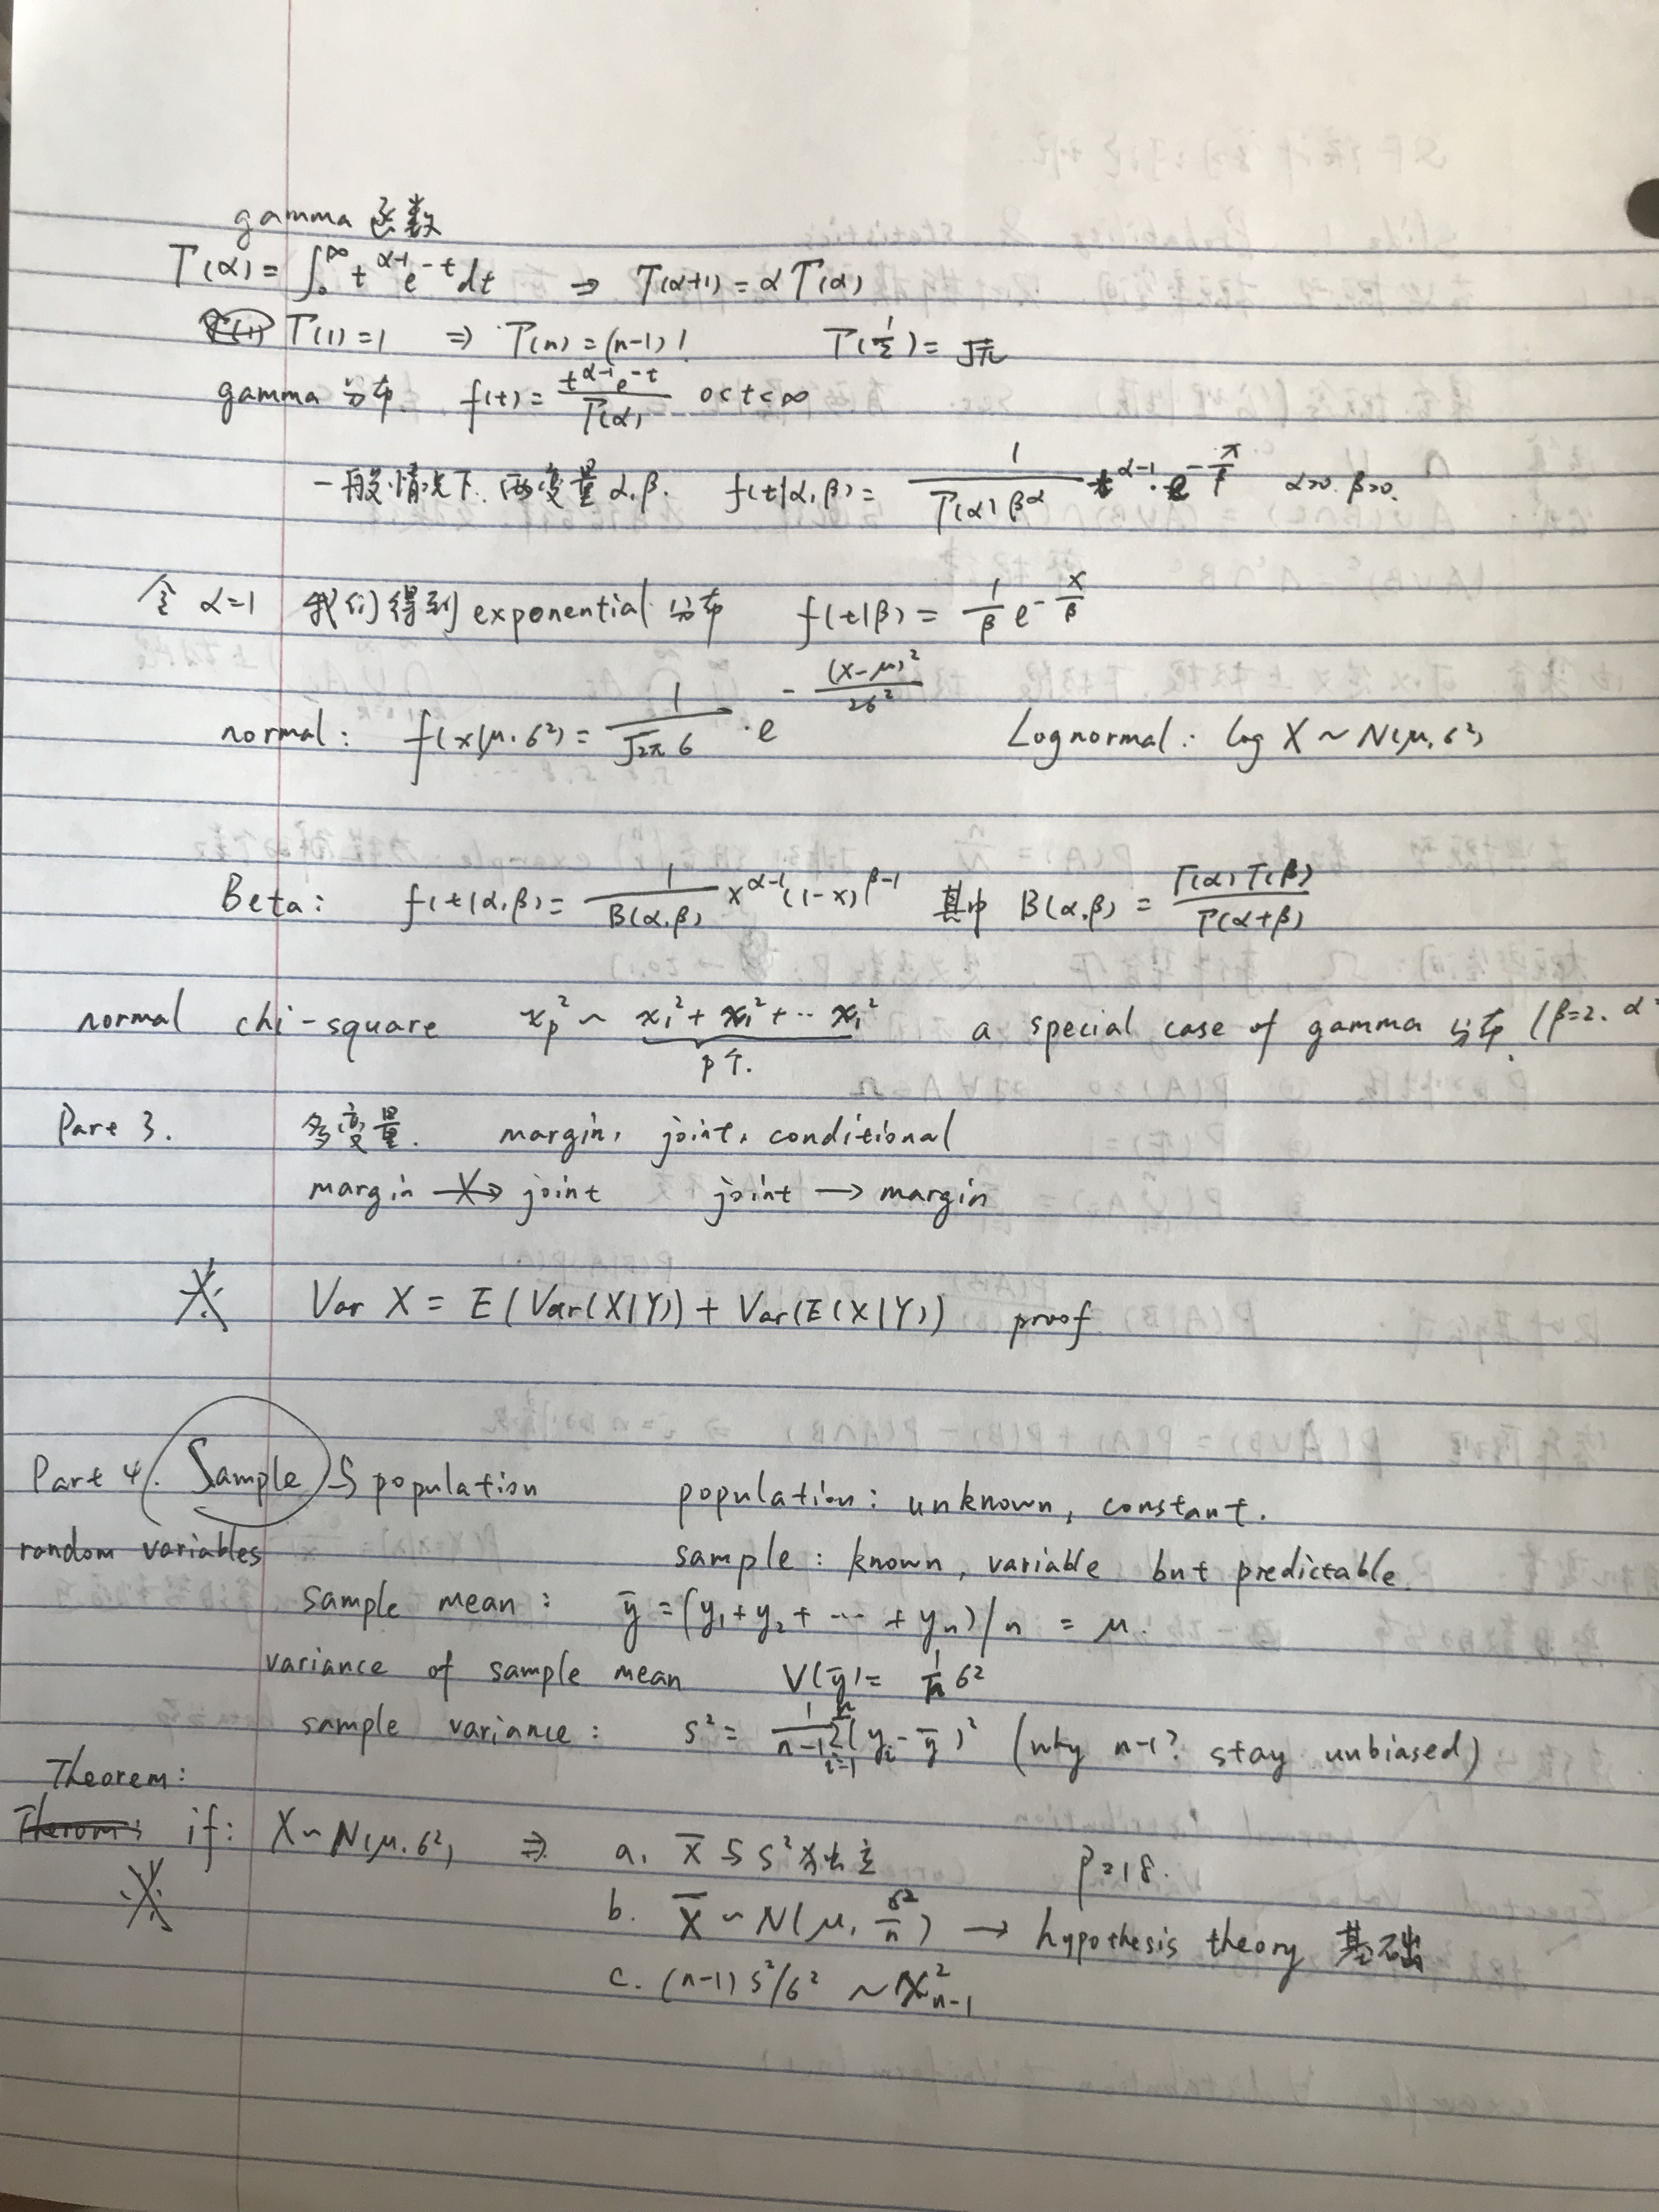 gamma 函数
Γ(α) = ∫₀^∞ t^(α-1) e^(-t) dt ⇒ Γ(α+1) = αΓ(α)
Γ(1) = 1 ⇒ Γ(n) = (n-1)! Γ(1/2) = √π
gamma 分布 f(t) = t^(α-1) e^(-t) / Γ(α) 0<t<∞
一般情况下, 两变量 α, β. f(t|α, β) = 1/(Γ(α) β^α) x^(α-1) · e^(-x/β) α>0. β>0.
令 α=1 我们得到 exponential 分布 f(t|β) = 1/β e^(-x/β)
normal: f(x|μ, σ²) = 1/(√2π σ) · e^(-(x-μ)²/2σ²) Lognormal: log X ~ N(μ, σ²)
Beta: f(t|α, β) = 1/B(α, β) x^(α-1) (1-x)^(β-1) 其中 B(α, β) = Γ(α) Γ(β) / Γ(α+β)
normal chi-square χp² ~ χ₁² + χ₁² + ·· χ₁² a special case of gamma 分布 (β=2, α
p个.
Part 3. 多变量. margin, joint, conditional
margin -X-> joint joint → margin
※ Var X = E(Var(X|Y)) + Var(E(X|Y)) proof
Part 4. Sample 与 population population: unknown, constant.
random variables sample: known, variable but predictable.
sample mean: ȳ = (y₁ + y₂ + ··· + yn)/n = μ.
variance of sample mean V(ȳ) = 1/n σ²
sample variance: s² = 1/(n-1) Σ_(i=1)^n (yi - ȳ)² (why n-1? stay unbiased)
Theorem:
Therom: if: X ~ N(μ, σ²) ⇒ a. X̄ 与 s² 独立 P218.
※ b. X̄ ~ N(μ, σ²/n) → hypothesis theory 基础
c. (n-1) s²/σ² ~ χ²_(n-1)